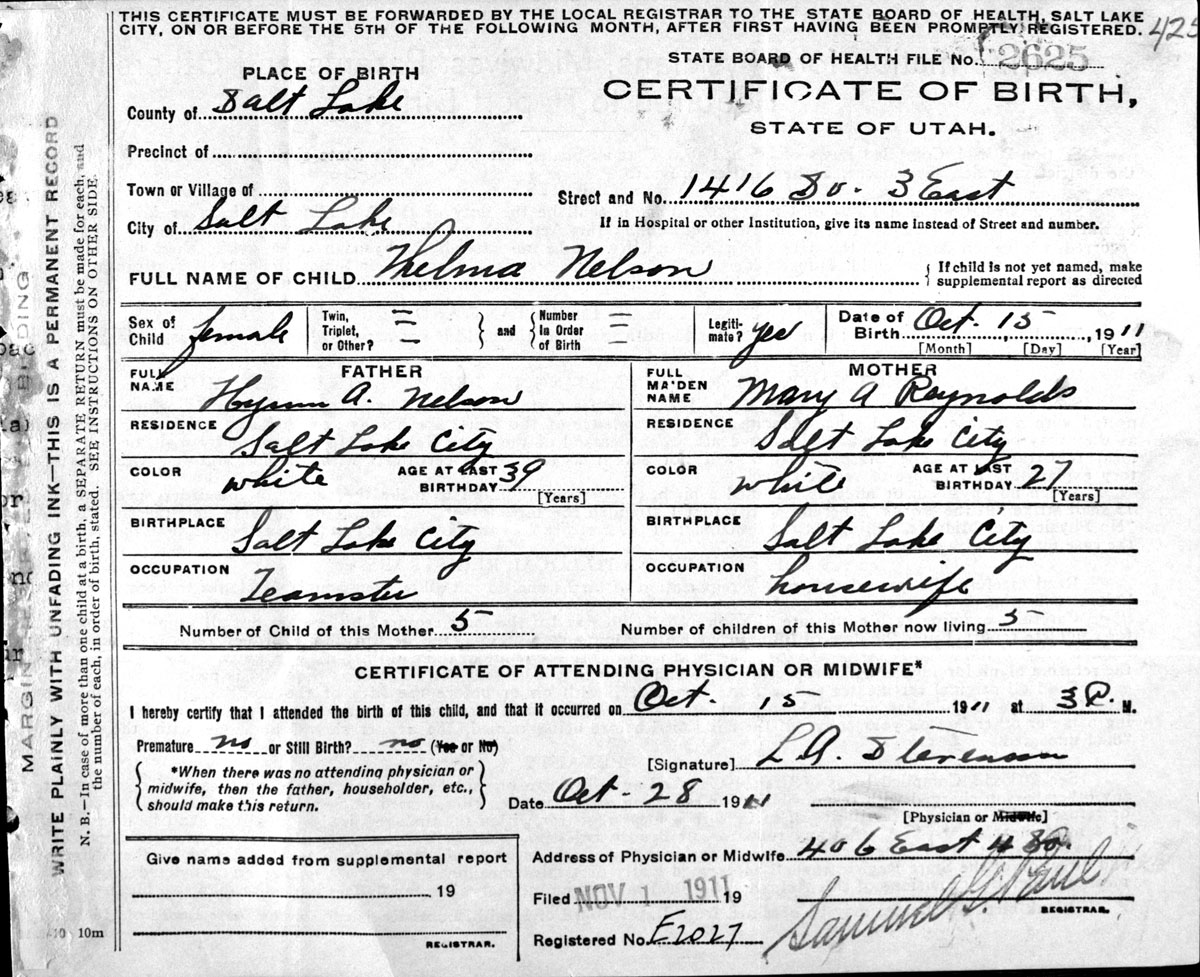 THIS CERTIFICATE MUST BE FORWARDED BY THE LOCAL REGISTRAR TO THE STATE BOARD OF HEALTH, SALT LAKE
CITY, ON OR BEFORE THE 5TH OF THE FOLLOWING MONTH, AFTER FIRST HAVING BEEN PROMPTLY REGISTERED.
425
STATE BOARD OF HEALTH FILE No. 2625
PLACE OF BIRTH
CERTIFICATE OF BIRTH,
County of Salt Lake
STATE OF UTAH.
Precinct of
Town or Village of
Street and No. 1416 So. 3 East
City of Salt Lake
If in Hospital or other Institution, give its name instead of Street and number.
FULL NAME OF CHILD Thelma Nelson
If child is not yet named, make
supplemental report as directed
Sex of
Child female
Twin,
Triplet,
or Other?
and
Number
In Order
of Birth
Legiti-
mate? yes
Date of
Birth Oct. 15, 1911
[Month] [Day] [Year]
FATHER
FULL
NAME A. Nelson
RESIDENCE
Salt Lake City
COLOR white
AGE AT LAST
BIRTHDAY 39
[Years]
BIRTHPLACE
Salt Lake City
OCCUPATION
Teamster
MOTHER
FULL
MAIDEN
NAME Mary A Reynolds
RESIDENCE
Salt Lake City
COLOR white
AGE AT LAST
BIRTHDAY 27
[Years]
BIRTHPLACE
Salt Lake City
OCCUPATION
housewife
Number of Child of this Mother 5
Number of children of this Mother now living 5
CERTIFICATE OF ATTENDING PHYSICIAN OR MIDWIFE*
I hereby certify that I attended the birth of this child, and that it occurred on Oct. 15 1911 at 3 P. M.
Premature no or Still Birth? no (Yes or No)
[Signature] L.A. Stevenson
*When there was no attending physician or
midwife, then the father, householder, etc.,
should make this return.
Date Oct - 28 1911
[Physician or Midwife]
Give name added from supplemental report
19
REGISTRAR.
Address of Physician or Midwife 406 East 4 So.
Filed NOV 1 1911 19
Samuel G. Paul
REGISTRAR.
Registered No. E2027
10 10m
MARGIN RESERVED FOR BINDING
WRITE PLAINLY WITH UNFADING INK—THIS IS A PERMANENT RECORD
N. B.—In case of more than one child at a birth, a SEPARATE RETURN must be made for each, and
the number of each, in order of birth, stated. SEE INSTRUCTIONS ON OTHER SIDE.